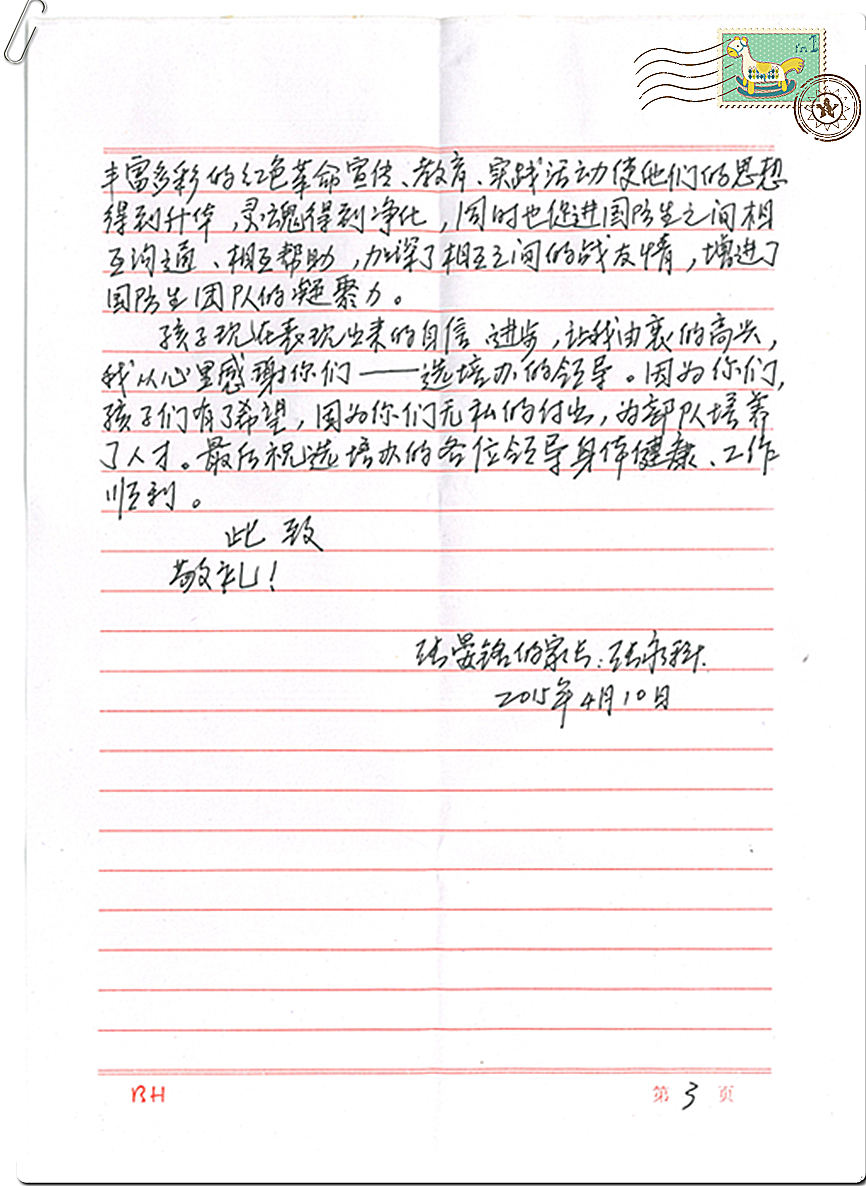 丰富多彩的红色革命宣传、教育、实践活动使他们的思想
得到升华,灵魂得到净化,同时也促进国防生之间相
互沟通、相互帮助,加深了相互之间的战友情,增进了
国防生团队的凝聚力。
孩子现在表现出来的自信 进步,让我由衷的高兴,
我从心里感谢你们——选培办的领导。因为你们,
孩子们有了希望,因为你们无私的付出,为部队培养
了人才。最后祝选培办的各位领导身体健康、工作
顺利。
此致
敬礼!
张晏铭的家长:张永科.
2015年4月10日
BH
第 3 页